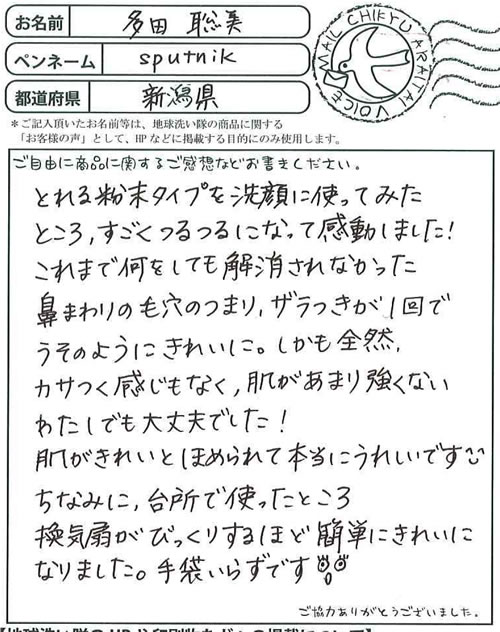 お名前 多田 聡美
ペンネーム sputnik
都道府県 新潟県
MAIL CHIKYU ARAITAI VOICE
*ご記入頂いたお名前等は、地球洗い隊の商品に関する
「お客様の声」として、HPなどに掲載する目的にのみ使用します。
ご自由に商品に関するご感想などお書きください。
とれる粉末タイプを洗顔に使ってみた
ところ,すごくつるつるになって感動しました!
これまで何をしても解消されなかった
鼻まわりの毛穴のつまり,ザラつきが1回で
うそのようにきれいに。しかも全然,
カサつく感じもなく,肌があまり強くない
わたしでも大丈夫でした!
肌がきれいとほめられて本当にうれしいです
ちなみに,台所で使ったところ
換気扇がびっくりするほど簡単にきれいに
なりました。手袋いらずです
ご協力ありがとうございました。